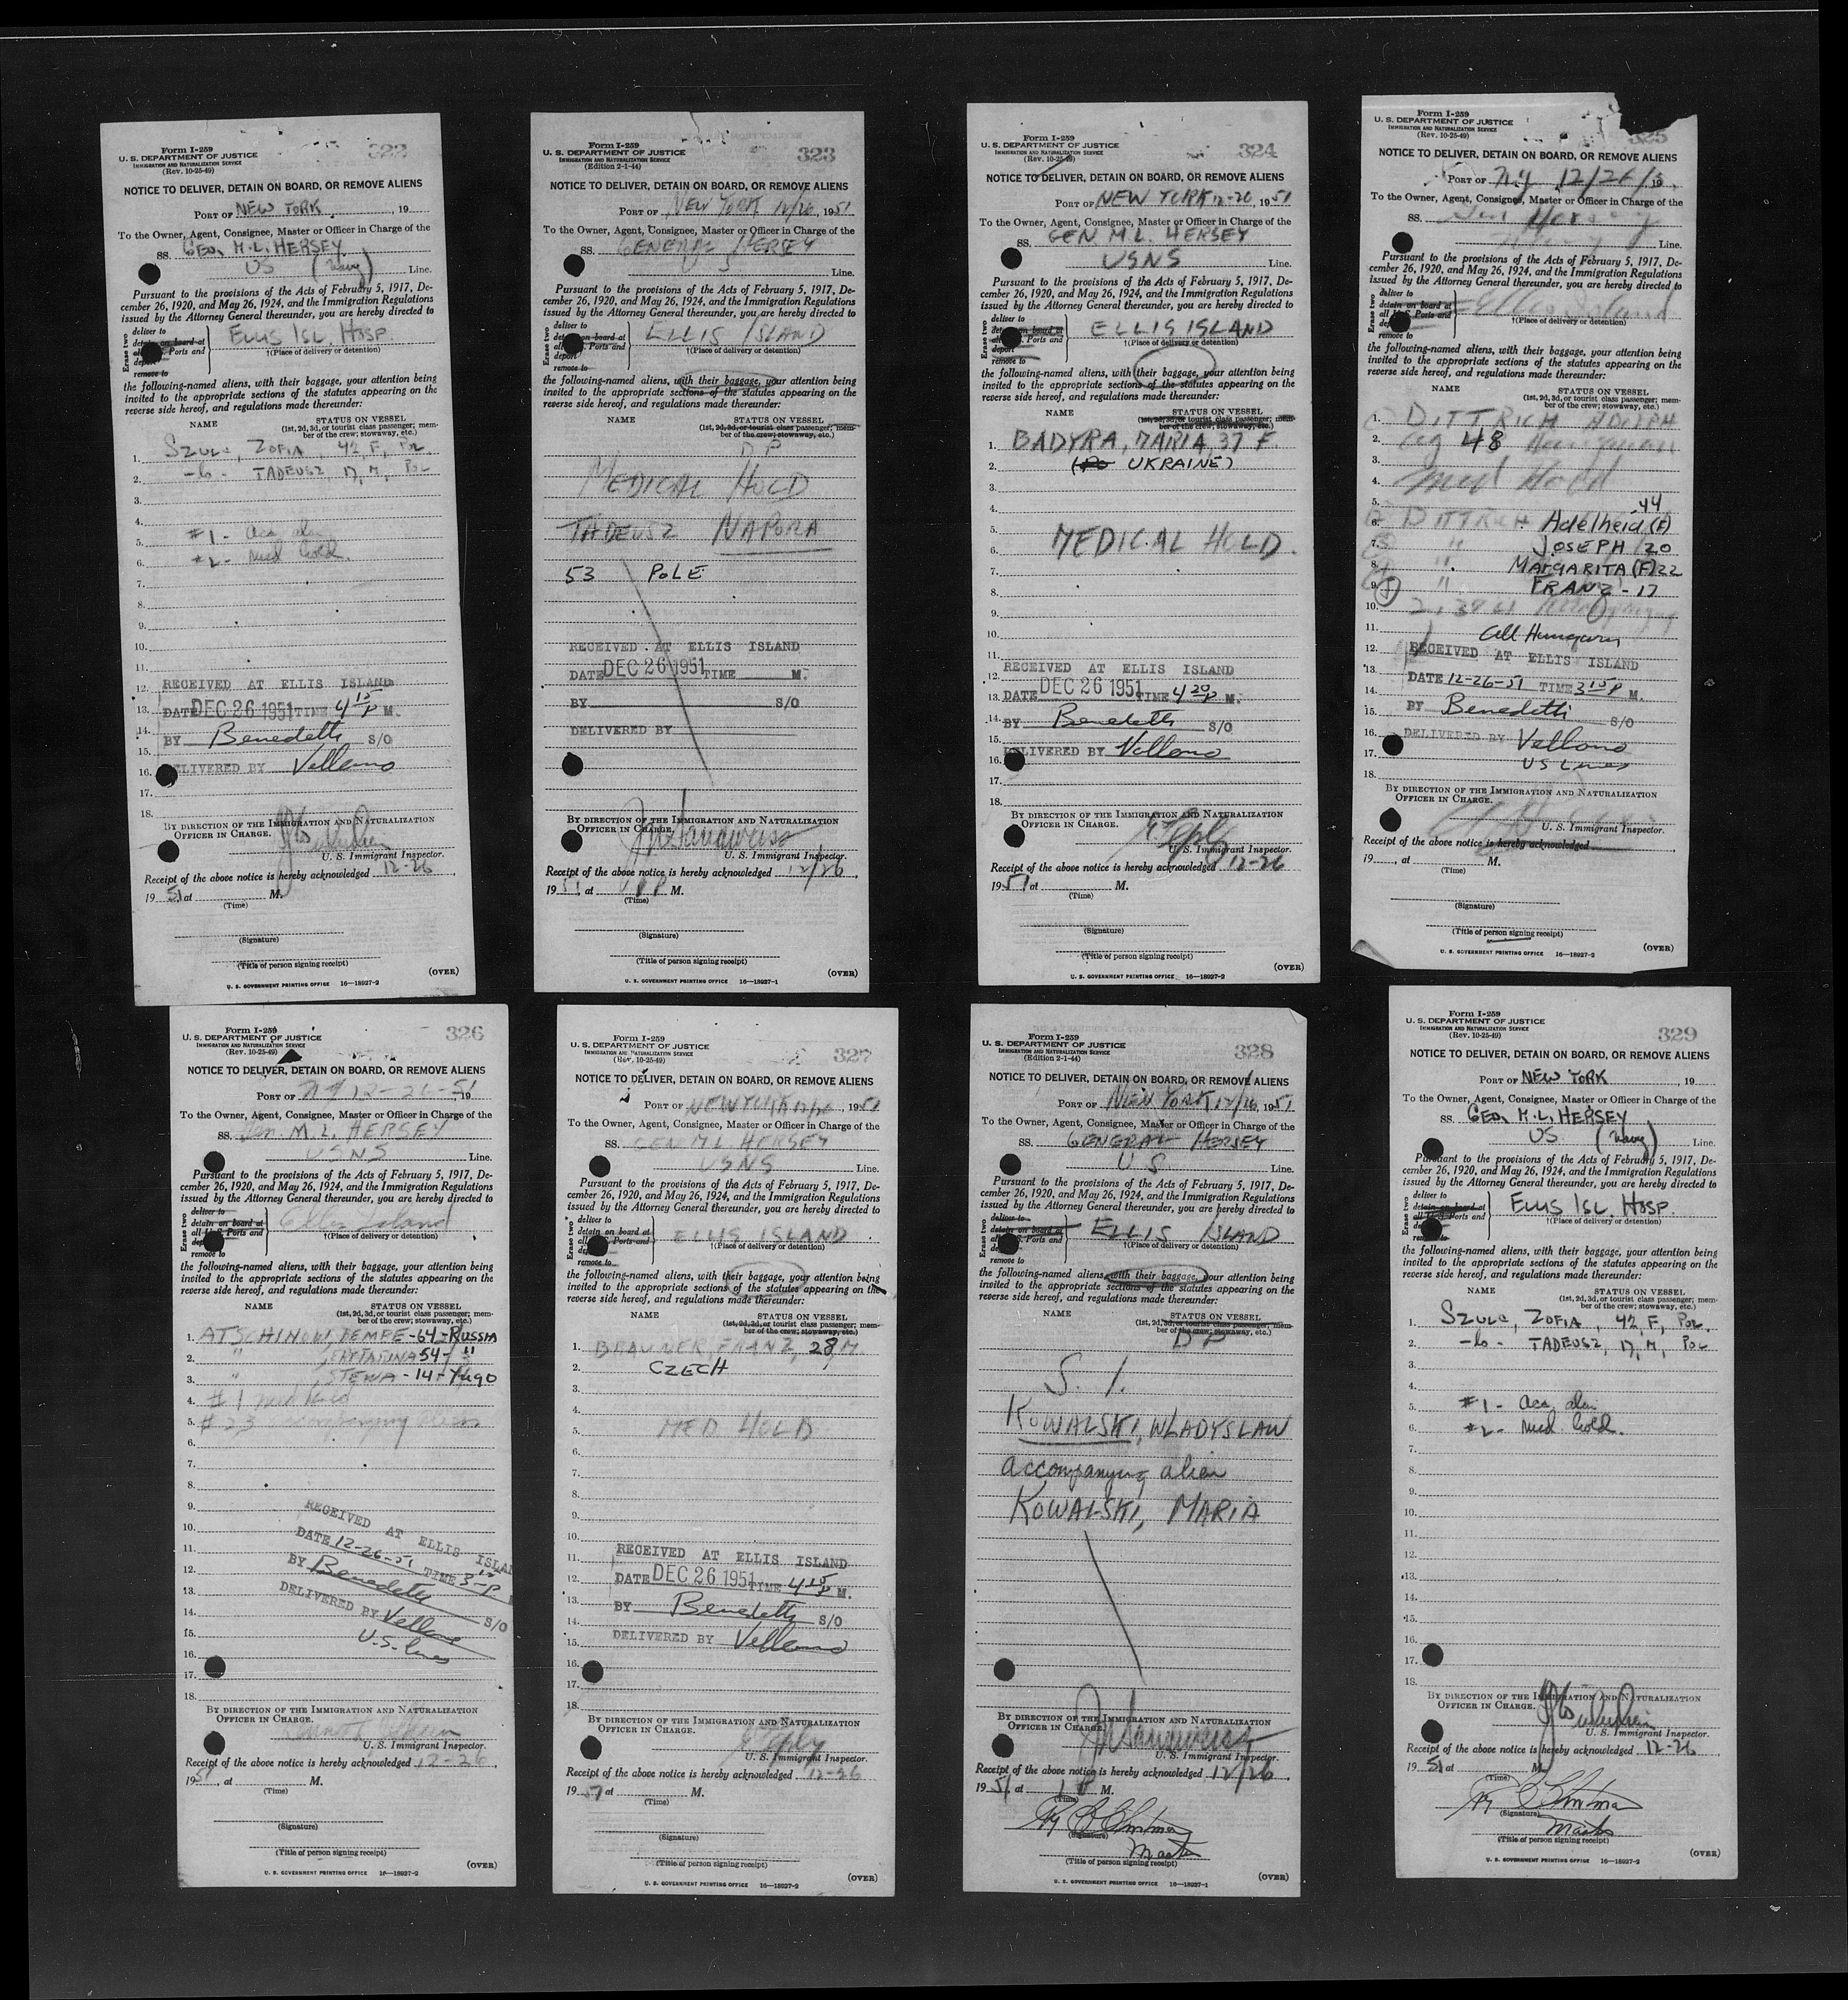 322
Form I-259
U. S. DEPARTMENT OF JUSTICE
IMMIGRATION AND NATURALIZATION SERVICE
(Rev. 10-25-49)
NOTICE TO DELIVER, DETAIN ON BOARD, OR REMOVE ALIENS
PORT OF NEW YORK , 19
To the Owner, Agent, Consignee, Master or Officer in Charge of the
SS. GEO. M. L. HERSEY
US (Navy) Line.
Pursuant to the provisions of the Acts of February 5, 1917, De-
cember 26, 1920, and May 26, 1924, and the Immigration Regulations
issued by the Attorney General thereunder, you are hereby directed to
Erase two
deliver to
detain on board at
Ports and
remove to
ELLIS ISL. HOSP
†(Place of delivery or detention)
the following-named aliens, with their baggage, your attention being
invited to the appropriate sections of the statutes appearing on the
reverse side hereof, and regulations made thereunder:
NAME STATUS ON VESSEL
(1st, 2d, 3d, or tourist class passenger; mem-
ber of the crew; stowaway, etc.)
1. SZULC, ZOFIA, 42, F, POL
2. -do- TADEUSZ, 17, M, POL
3.
4.
5. #1 - acc. alien
6. #2 - med hold.
7.
8.
9.
10.
11.
12. RECEIVED AT ELLIS ISLAND
13. DATE DEC 26 1951 TIME 4 15 P M.
14.
BY Benedetti S/O
15.
16. DELIVERED BY Vellano
17.
18.
BY DIRECTION OF THE IMMIGRATION AND NATURALIZATION
OFFICER IN CHARGE.
U. S. Immigrant Inspector.
Receipt of the above notice is hereby acknowledged 12-26,
19 51 at M.
(Time)
(Signature)
(Title of person signing receipt)
(OVER)
U. S. GOVERNMENT PRINTING OFFICE 16—18927-2
323
Form I-259
U. S. DEPARTMENT OF JUSTICE
IMMIGRATION AND NATURALIZATION SERVICE
(Edition 2-1-44)
NOTICE TO DELIVER, DETAIN ON BOARD, OR REMOVE ALIENS
PORT OF NEW YORK 12/26, 1951
To the Owner, Agent, Consignee, Master or Officer in Charge of the
SS. GENERAL HERSEY
U S Line.
Pursuant to the provisions of the Acts of February 5, 1917, De-
cember 26, 1920, and May 26, 1924, and the Immigration Regulations
issued by the Attorney General thereunder, you are hereby directed to
Erase two
deliver to
detain on board at
Ports and
deport
remove to
ELLIS ISLAND
†(Place of delivery or detention)
the following-named aliens, with their baggage, your attention being
invited to the appropriate sections of the statutes appearing on the
reverse side hereof, and regulations made thereunder:
NAME STATUS ON VESSEL
(1st, 2d, 3d, or tourist class passenger; mem-
ber of the crew; stowaway, etc.)
D P
MEDICAL HOLD
TADEUSZ NAPORA
53 POLE
RECEIVED AT ELLIS ISLAND
DATE DEC 26 1951 TIME M.
BY S/O
DELIVERED BY
BY DIRECTION OF THE IMMIGRATION AND NATURALIZATION
OFFICER IN CHARGE.
U. S. Immigrant Inspector.
Receipt of the above notice is hereby acknowledged 12/26,
19 51, at 1 P M.
(Time)
(Signature)
(Title of person signing receipt)
(OVER)
U. S. GOVERNMENT PRINTING OFFICE 16—18927-1
324
Form I-259
U. S. DEPARTMENT OF JUSTICE
IMMIGRATION AND NATURALIZATION SERVICE
(Rev. 10-25-49)
NOTICE TO DELIVER, DETAIN ON BOARD, OR REMOVE ALIENS
PORT OF NEW YORK 12-26, 1951
To the Owner, Agent, Consignee, Master or Officer in Charge of the
SS. GEN M. L. HERSEY
USNS Line.
Pursuant to the provisions of the Acts of February 5, 1917, De-
cember 26, 1920, and May 26, 1924, and the Immigration Regulations
issued by the Attorney General thereunder, you are hereby directed to
Erase two
deliver to
on board at
Ports and
deport
remove to
ELLIS ISLAND
†(Place of delivery or detention)
the following-named aliens, with their baggage, your attention being
invited to the appropriate sections of the statutes appearing on the
reverse side hereof, and regulations made thereunder:
NAME STATUS ON VESSEL
(1st, 2d, 3d, or tourist class passenger; mem-
ber of the crew; stowaway, etc.)
1. BADYRA, MARIA 37 F.
2. UKRAINE)
3.
4.
5. MEDICAL HOLD.
6.
7.
8.
9.
10.
11.
12. RECEIVED AT ELLIS ISLAND
13. DATE DEC 26 1951 TIME 4 20 P M.
14. BY Benedetti S/O
15.
16. DELIVERED BY Vellano
17.
18.
BY DIRECTION OF THE IMMIGRATION AND NATURALIZATION
OFFICER IN CHARGE.
U. S. Immigrant Inspector.
Receipt of the above notice is hereby acknowledged 12-26
19 51 at M.
(Time)
(Signature)
(Title of person signing receipt)
(OVER)
U. S. GOVERNMENT PRINTING OFFICE 16—18927-2
325
Form I-259
U. S. DEPARTMENT OF JUSTICE
IMMIGRATION AND NATURALIZATION SERVICE
(Rev. 10-25-49)
NOTICE TO DELIVER, DETAIN ON BOARD, OR REMOVE ALIENS
PORT OF N.Y. 12/26/ 19
To the Owner, Agent, Consignee, Master or Officer in Charge of the
SS. Gen Hersey
Line.
Pursuant to the provisions of the Acts of February 5, 1917, De-
cember 26, 1920, and May 26, 1924, and the Immigration Regulations
issued by the Attorney General thereunder, you are hereby directed to
Erase two
deliver to
detain on board at
Ports and
remove to
Ellis Island
†(Place of delivery or detention)
the following-named aliens, with their baggage, your attention being
invited to the appropriate sections of the statutes appearing on the
reverse side hereof, and regulations made thereunder:
NAME STATUS ON VESSEL
(1st, 2d, 3d, or tourist class passenger; mem-
ber of the crew; stowaway, etc.)
1. DITTRICH ADOLPH
2. 48
3.
4. Med Hold
5. 44
6. DITTRICH Adelheid (F)
7. " JOSEPH 20
8. " MARGARITA (F) 22
9. " FRANZ - 17
10.
11. All Hungary
12. RECEIVED AT ELLIS ISLAND
13.
DATE 12-26-51 TIME 3 15 P M.
14.
15. BY Benedetti S/O
16. DELIVERED BY Vellano
17. US Lines
18.
BY DIRECTION OF THE IMMIGRATION AND NATURALIZATION
OFFICER IN CHARGE.
U. S. Immigrant Inspector.
Receipt of the above notice is hereby acknowledged
19 , at M.
(Time)
(Signature)
(Title of person signing receipt)
(OVER)
U. S. GOVERNMENT PRINTING OFFICE 16—18927-2
326
Form I-259
U. S. DEPARTMENT OF JUSTICE
IMMIGRATION AND NATURALIZATION SERVICE
(Rev. 10-25-49)
NOTICE TO DELIVER, DETAIN ON BOARD, OR REMOVE ALIENS
PORT OF NY 12-26-51, 19
To the Owner, Agent, Consignee, Master or Officer in Charge of the
SS. Gen. M. L. HERSEY
USNS Line.
Pursuant to the provisions of the Acts of February 5, 1917, De-
cember 26, 1920, and May 26, 1924, and the Immigration Regulations
issued by the Attorney General thereunder, you are hereby directed to
Erase two
deliver to
detain on board at
Ports and
remove to
Ellis Island
†(Place of delivery or detention)
the following-named aliens, with their baggage, your attention being
invited to the appropriate sections of the statutes appearing on the
reverse side hereof, and regulations made thereunder:
NAME STATUS ON VESSEL
(1st, 2d, 3d, or tourist class passenger; mem-
ber of the crew; stowaway, etc.)
1. ATSCHINOW, - 64 - RUSSIA
2. " 54 - "
3. " STEWA - 14 - Yugo
4. # 1 med hold
5. # 2, 3 accompanying aliens
6.
7.
8.
9.
10.
11.
12.
13.
14.
15.
16.
17.
18.
RECEIVED AT ELLIS ISLAND
DATE 12-26-51 TIME 3 15 P
BY Benedetti S/O
DELIVERED BY Vellano
U.S. Lines
BY DIRECTION OF THE IMMIGRATION AND NATURALIZATION
OFFICER IN CHARGE.
U. S. Immigrant Inspector.
Receipt of the above notice is hereby acknowledged 12-26,
19 51, at M.
(Time)
(Signature)
(Title of person signing receipt)
(OVER)
U. S. GOVERNMENT PRINTING OFFICE 16—18927-2
327
Form I-259
U. S. DEPARTMENT OF JUSTICE
IMMIGRATION AND NATURALIZATION SERVICE
(Rev. 10-25-49)
NOTICE TO DELIVER, DETAIN ON BOARD, OR REMOVE ALIENS
PORT OF NEW YORK 12/26, 1951
To the Owner, Agent, Consignee, Master or Officer in Charge of the
SS. GEN M L HERSEY
USNS Line.
Pursuant to the provisions of the Acts of February 5, 1917, De-
cember 26, 1920, and May 26, 1924, and the Immigration Regulations
issued by the Attorney General thereunder, you are hereby directed to
Erase two
deliver to
detain on board at
Ports and
remove to
ELLIS ISLAND
†(Place of delivery or detention)
the following-named aliens, with their baggage, your attention being
invited to the appropriate sections of the statutes appearing on the
reverse side hereof, and regulations made thereunder:
NAME STATUS ON VESSEL
(1st, 2d, 3d, or tourist class passenger; mem-
ber of the crew; stowaway, etc.)
1. BRAUNER, FRANZ, 28, M
2. CZECH
3.
4.
5. MED HOLD
6.
7.
8.
9.
10.
11. RECEIVED AT ELLIS ISLAND
12. DATE DEC 26 1951 TIME 4 15 P M.
13. BY Benedetti S/O
14.
DELIVERED BY Vellano
15.
16.
17.
18.
BY DIRECTION OF THE IMMIGRATION AND NATURALIZATION
OFFICER IN CHARGE.
U. S. Immigrant Inspector.
Receipt of the above notice is hereby acknowledged 12-26
19 51 at M.
(Time)
(Signature)
(Title of person signing receipt)
(OVER)
U. S. GOVERNMENT PRINTING OFFICE 16—18927-2
328
Form I-259
U. S. DEPARTMENT OF JUSTICE
IMMIGRATION AND NATURALIZATION SERVICE
(Edition 2-1-44)
NOTICE TO DELIVER, DETAIN ON BOARD, OR REMOVE ALIENS
PORT OF NEW YORK 12/26, 1951
To the Owner, Agent, Consignee, Master or Officer in Charge of the
SS. GENERAL HERSEY
U S Line.
Pursuant to the provisions of the Acts of February 5, 1917, De-
cember 26, 1920, and May 26, 1924, and the Immigration Regulations
issued by the Attorney General thereunder, you are hereby directed to
Erase two
deliver to
detain on board at
Ports and
remove to
ELLIS ISLAND
†(Place of delivery or detention)
the following-named aliens, with their baggage, your attention being
invited to the appropriate sections of the statutes appearing on the
reverse side hereof, and regulations made thereunder:
NAME STATUS ON VESSEL
(1st, 2d, 3d, or tourist class passenger; mem-
ber of the crew; stowaway, etc.)
D P
S. I.
KOWALSKI, WLADYSLAW
accompanying alien
KOWALSKI, MARIA
BY DIRECTION OF THE IMMIGRATION AND NATURALIZATION
OFFICER IN CHARGE.
U. S. Immigrant Inspector.
Receipt of the above notice is hereby acknowledged 12/26,
19 51 at 1 P M.
(Time)
(Signature)
Master
(Title of person signing receipt)
(OVER)
U. S. GOVERNMENT PRINTING OFFICE 16—18927-1
329
Form I-259
U. S. DEPARTMENT OF JUSTICE
IMMIGRATION AND NATURALIZATION SERVICE
(Rev. 10-25-49)
NOTICE TO DELIVER, DETAIN ON BOARD, OR REMOVE ALIENS
PORT OF NEW YORK , 19
To the Owner, Agent, Consignee, Master or Officer in Charge of the
SS. GEO. M. L. HERSEY
US (Navy) Line.
Pursuant to the provisions of the Acts of February 5, 1917, De-
cember 26, 1920, and May 26, 1924, and the Immigration Regulations
issued by the Attorney General thereunder, you are hereby directed to
Erase two
deliver to
detain on board at
Ports and
remove to
ELLIS ISL. HOSP.
†(Place of delivery or detention)
the following-named aliens, with their baggage, your attention being
invited to the appropriate sections of the statutes appearing on the
reverse side hereof, and regulations made thereunder:
NAME STATUS ON VESSEL
(1st, 2d, 3d, or tourist class passenger; mem-
ber of the crew; stowaway, etc.)
1. SZULC, ZOFIA, 42, F, POL.
2. -do- TADEUSZ, 17, M, POL
3.
4.
5. #1 - acc. alien
6. #2 - med hold.
7.
8.
9.
10.
11.
12.
13.
14.
15.
16.
17.
18.
BY DIRECTION OF THE IMMIGRATION AND NATURALIZATION
OFFICER IN CHARGE.
U. S. Immigrant Inspector.
Receipt of the above notice is hereby acknowledged 12-26,
19 51 at M.
(Time)
(Signature)
Master
(Title of person signing receipt)
(OVER)
U. S. GOVERNMENT PRINTING OFFICE 16—18927-2